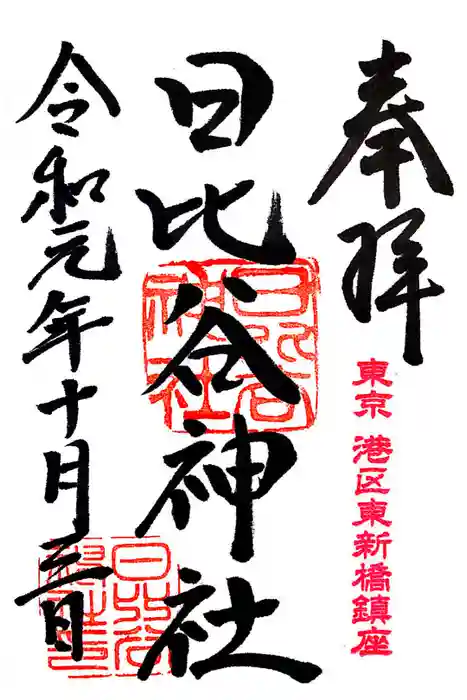 奉拝
東京 港区東新橋鎮座
日比谷神社
日比谷神社
令和元年十月三日